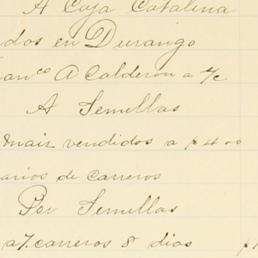 A Caja Catalina
dos en Durango
A Calderon a %c
A Semillas
Maiz vendidos a $4 00
arios de carreros
Per Semillas
a 7 carreros 8 dias